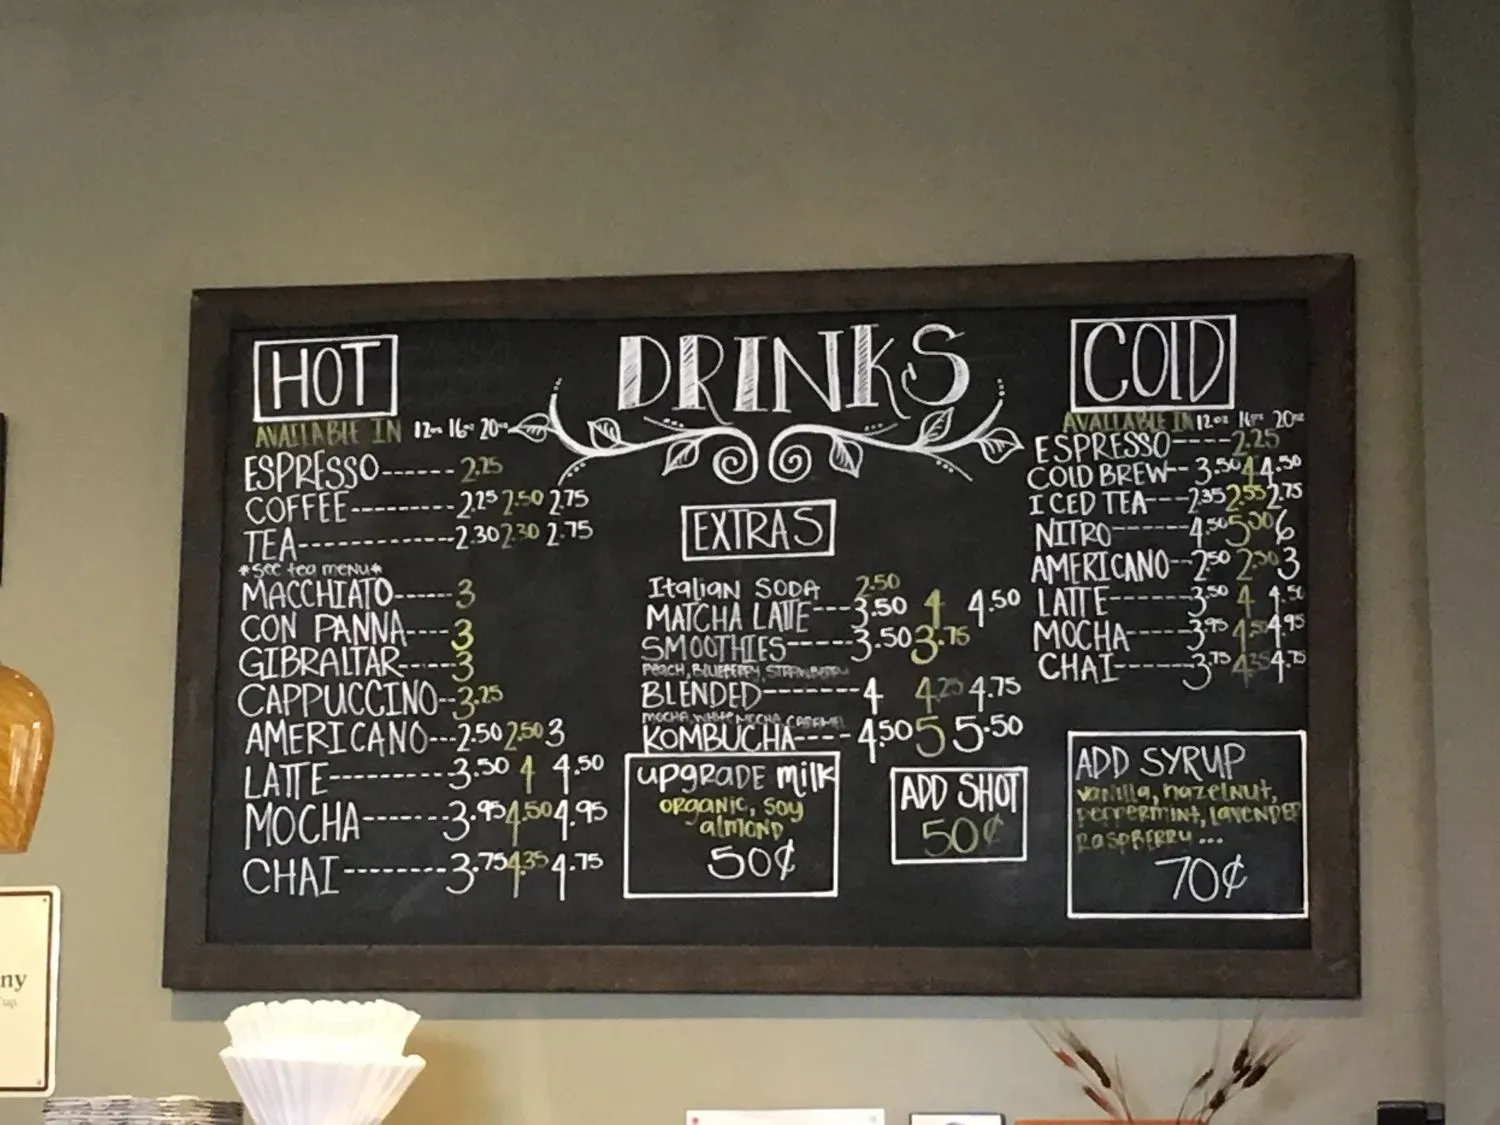 DRINKS
HOT
AVAILABLE IN 12oz 16oz 20oz
ESPRESSO------ 2.25
COFFEE--------- 2.25 2.50 2.75
TEA------------ 2.30 2.30 2.75
*see tea menu*
MACCHIATO----- 3
CON PANNA---- 3
GIBRALTAR----- 3
CAPPUCCINO-- 3.25
AMERICANO--- 2.50 2.50 3
LATTE---------- 3.50 4 4.50
MOCHA------- 3.95 4.50 4.95
CHAI--------- 3.75 4.35 4.75
EXTRAS
Italian SODA 2.50
MATCHA LATTE--- 3.50 4 4.50
SMOOTHIES----- 3.50 3.75
PEACH, BLUEBERRY, STRAWBERRY
BLENDED------- 4 4.25 4.75
MOCHA, WHITE MOCHA, CARAMEL
KOMBUCHA---- 4.50 5 5.50
upgrade milk
organic, soy
almond
50¢
ADD SHOT
50¢
COLD
AVAILABLE IN 12oz 16oz 20oz
ESPRESSO---- 2.25
COLD BREW-- 3.50 4 4.50
ICED TEA--- 2.35 2.55 2.75
NITRO------ 4.50 5.00 6
AMERICANO-- 2.50 2.50 3
LATTE------- 3.50 4 4.50
MOCHA----- 3.95 4.50 4.95
CHAI------ 3.75 4.35 4.75
ADD SYRUP
vanilla, hazelnut,
peppermint, lavender
raspberry...
70¢
ny